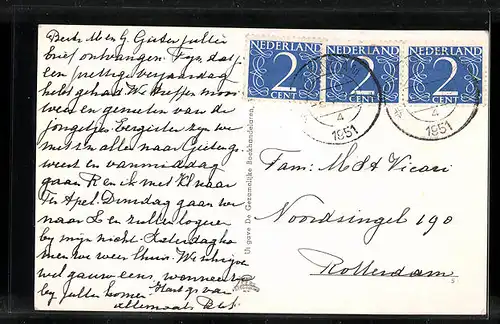 Beste M en G. Gister jullie
brief ontvangen. Fijn dat je
een prettige verjaardag
hebt gehad We treffen mooi
weer en genieten van de
jongetjes Eergister zijn we
met z'n allen naar
geweest en vanmiddag
gaan R en ik met Kl naar
Ter Apel. Dinsdag gaan we
naar L en zullen logeren
bij mijn nicht. Zaterdags
komen we weer thuis. We schrijven
wel gauw eens, wanneer we
bij jullie komen. Hart. gr. van
allemaal
NEDERLAND
2
CENT
NEDERLAND
2
CENT
NEDERLAND
2
CENT
4
1951
4
1951
Uitgave De Gezamelijke Boekhandelaren
Fam: M d A Vicari
Noordsingel 190
Rotterdam